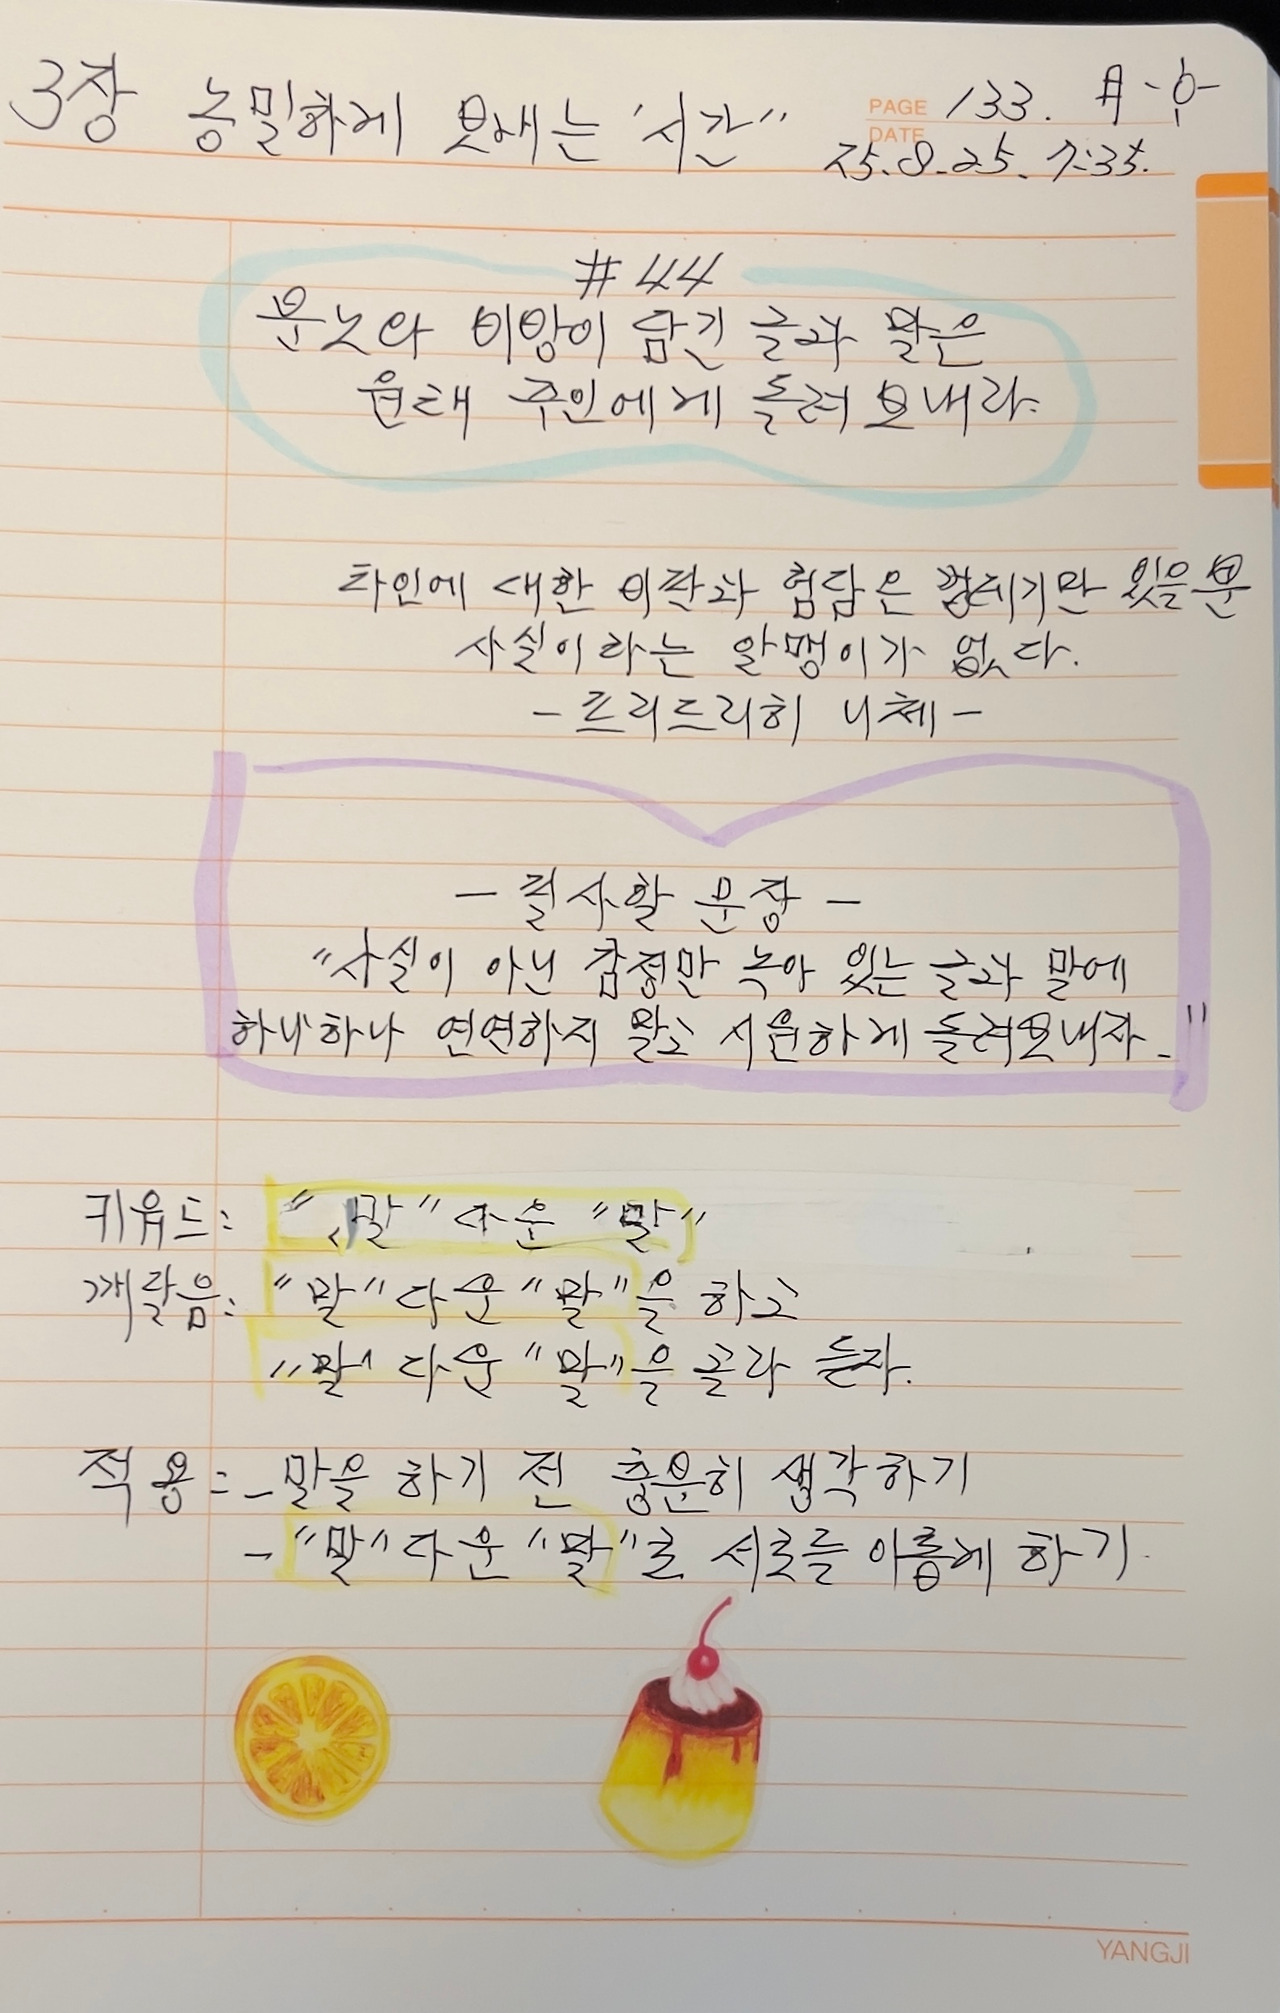 3장 농밀하게 보내는 "시간"
PAGE 133.
DATE 25.8.25. 7:35.
#44
분노와 비방이 담긴 글과 말은
원래 주인에게 돌려 보내라.
타인에 대한 비판과 험담은 껍데기만 있을 뿐
사실이라는 알맹이가 없다.
- 프리드리히 니체 -
- 필사할 문장 -
"사실이 아닌 감정만 녹아 있는 글과 말에
하나하나 연연하지 말고 시원하게 돌려보내자."
키워드: "말"다운 "말"
깨달음: "말"다운 "말"을 하고
"말"다운 "말"을 골라 듣자.
적용: - 말을 하기 전 충분히 생각하기
- "말"다운 "말"로 서로를 이롭게 하기.
YANGJI